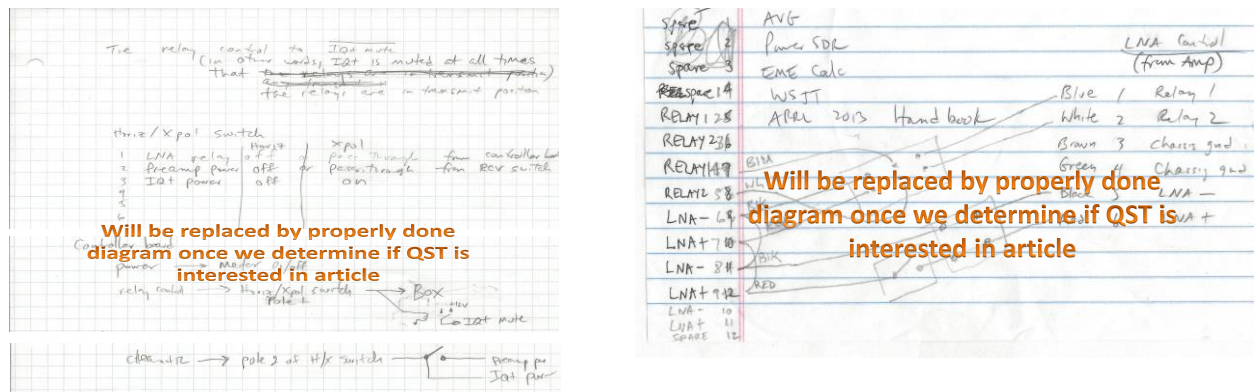 Tie relay control to IQ+ mute
(in other words, IQ+ is muted at all times
that the relays are in transmit position)
the relays are in transmit position
Horiz/Xpol switch
Horiz Xpol
1 LNA relay off or pass through from controller board
2 Preamp power off or pass through from RCV switch
3 IQ+ power off on
4
5
6
Will be replaced by properly done
diagram once we determine if QST is
interested in article
Controller board
power → Master on/off
relay control → Horiz/Xpol switch → Box
Pole 1
IQ+ mute
→ pole 2 of H/X switch
Preamp pwr
IQ+ pwr
Spare 1 AVG
Spare 2 Power SDR
Spare 3 EME Calc
Spare 4 WSJT
RELAY 1 ARRL 2013 Handbook
RELAY 2
RELAY 1
RELAY 2
LNA-
LNA+
LNA-
LNA+
LNA- 10
LNA+ 11
SPARE 12
BLU
WH
BLK
RED
LNA Control
(from Amp)
Blue 1 Relay 1
White 2 Relay 2
Brown 3 Chassis gnd
Green 4 Chassis gnd
Black 5 LNA-
LNA+
Will be replaced by properly done
diagram once we determine if QST is
interested in article